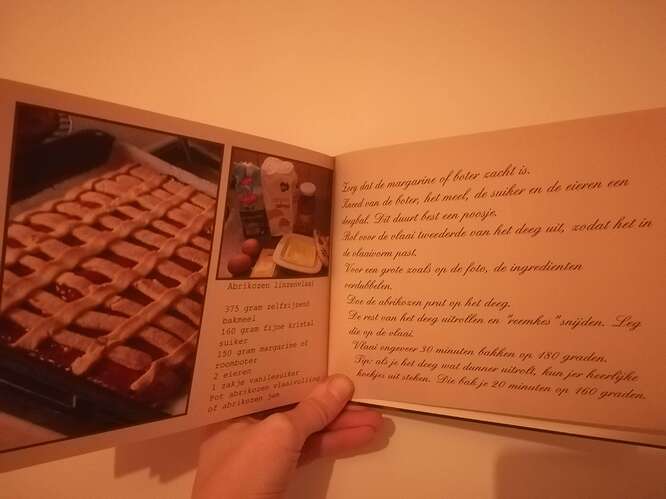 Abrikozen linzenvlaai
375 gram zelfrijzend
bakmeel
160 gram fijne kristal
suiker
150 gram margarine of
roomboter
2 eieren
1 zakje vanilesuiker
Pot abrikozen vlaaivulling
of abrikozen jam
Zorg dat de margarine of boter zacht is.
Kneed van de boter, het meel, de suiker en de eieren een
degbal. Dit duurt best een poosje.
Rol voor de vlaai tweederde van het deeg uit, zodat het in
de vlaaivorm past.
Voor een grote zoals op de foto, de ingredienten
verdubbelen.
Doe de abrikozen prut op het deeg.
De rest van het deeg uitrollen en "reemkes" snijden. Leg
die op de vlaai.
Vlaai ongeveer 30 minuten bakken op 180 graden.
Tip: als je het deeg wat dunner uitrolt, kun jer heerlijke
koekjes uit steken. Die bak je 20 minuten op 160 graden.